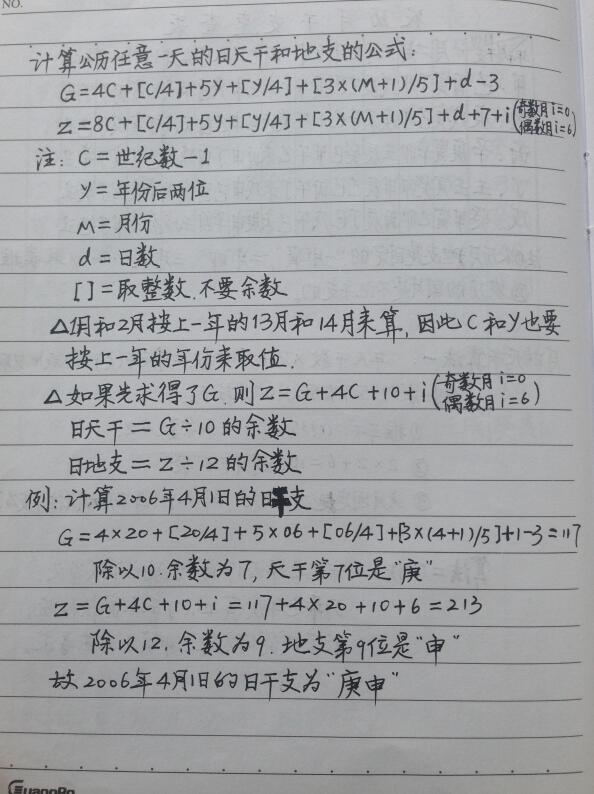 NO.
计算公历任意一天的日天干和地支的公式:
G=4C+[C/4]+5y+[y/4]+[3×(M+1)/5]+d-3
Z=8C+[C/4]+5y+[y/4]+[3×(M+1)/5]+d+7+i(奇数月i=0 偶数月i=6)
注: C=世纪数-1
y=年份后两位
M=月份
d=日数
[ ]=取整数.不要余数
△1月和2月按上一年的13月和14月来算,因此C和y也要
按上一年的年份来取值.
△如果先求得了G.则Z=G+4C+10+i(奇数月i=0 偶数月i=6)
日天干=G÷10的余数
日地支=Z÷12的余数
例:计算2006年4月1日的日干支
G=4×20+[20/4]+5×06+[06/4]+[3×(4+1)/5]+1-3=117
除以10.余数为7,天干第7位是"庚"
Z=G+4C+10+i=117+4×20+10+6=213
除以12.余数为9.地支第9位是"申"
故2006年4月1日的日干支为"庚申"
GuangBo